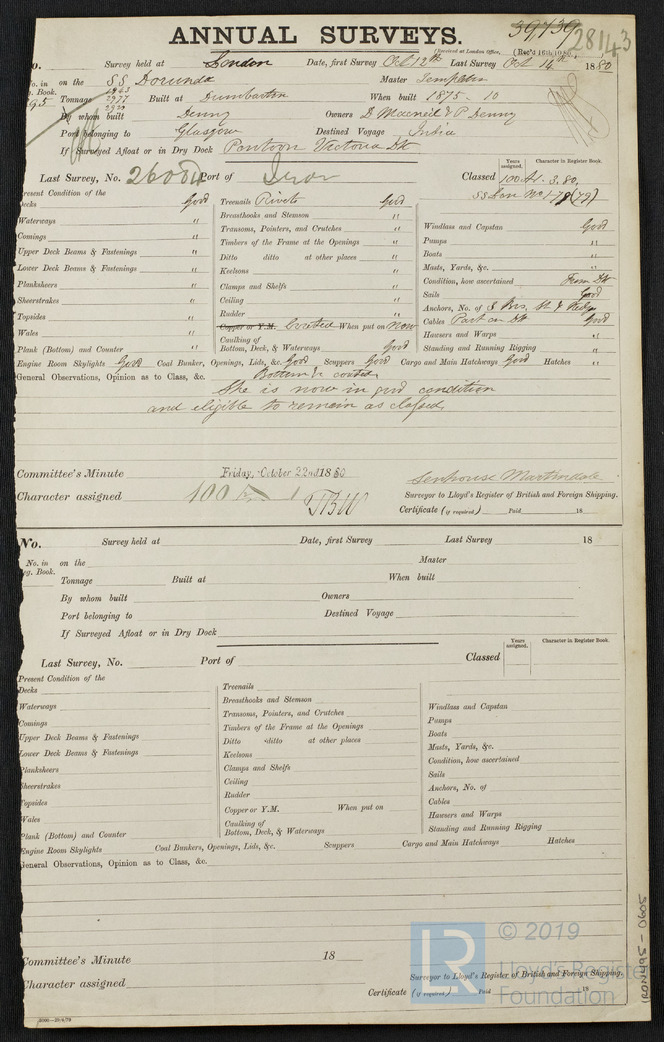 ANNUAL SURVEYS.
39,739
28143
(Received at London Office, (Rec'd 16th 10.80
No. Survey held at London Date, first Survey Oct 12th Last Survey Oct 14th 1880
No. in Reg. Book. on the SS Dorunda Master Templeton
295 Tonnage 1943 2977 Built at Dumbarton When built 1875-10
By whom built Denny Owners D Macneil & P Denny
Port belonging to Glasgow Destined Voyage India
If Surveyed Afloat or in Dry Dock Pontoon Victoria Dk
Years assigned. Character in Register Book.
Last Survey, No. 26004 Port of Iron Classed 100 A1. 3,80.
SS Lon No 1-79(79)
Present Condition of the
Decks Good
Waterways "
Comings "
Upper Deck Beams & Fastenings "
Lower Deck Beams & Fastenings "
Planksheers "
Sheerstrakes "
Topsides "
Wales "
Plank (Bottom) and Counter "
Treenails Rivets Good
Breasthooks and Stemson "
Transoms, Pointers, and Crutches "
Timbers of the Frame at the Openings "
Ditto ditto at other places "
Keelsons "
Clamps and Shelfs "
Ceiling "
Rudder "
Copper or Y.M. Coated When put on Now
Caulking of Bottom, Deck, & Waterways Good
Windlass and Capstan Good
Pumps "
Boats "
Masts, Yards, &c. "
Condition, how ascertained From Dk
Sails Good
Anchors, No. of 3 Brs, St & Kedge
Cables Part on Dk Good
Hawsers and Warps "
Standing and Running Rigging "
Engine Room Skylights Good Coal Bunker, Openings, Lids, &c. Good Scuppers Good Cargo and Main Hatchways Good Hatches "
General Observations, Opinion as to Class, &c. Bottom & coated
She is now in good condition
and eligible to remain as classed.
Committee's Minute Friday, October 22nd 1880
Senhouse Martindale
Character assigned 100 A 1
Surveyor to Lloyd's Register of British and Foreign Shipping.
Certificate (if required) Paid 18
No. Survey held at Date, first Survey Last Survey 18
No. in Reg. Book. on the Master
Tonnage Built at When built
By whom built Owners
Port belonging to Destined Voyage
If Surveyed Afloat or in Dry Dock
Years assigned. Character in Register Book.
Last Survey, No. Port of Classed
Present Condition of the
Decks
Waterways
Comings
Upper Deck Beams & Fastenings
Lower Deck Beams & Fastenings
Planksheers
Sheerstrakes
Topsides
Wales
Plank (Bottom) and Counter
Treenails
Breasthooks and Stemson
Transoms, Pointers, and Crutches
Timbers of the Frame at the Openings
Ditto ditto at other places
Keelsons
Clamps and Shelfs
Ceiling
Rudder
Copper or Y.M. When put on
Caulking of Bottom, Deck, & Waterways
Windlass and Capstan
Pumps
Boats
Masts, Yards, &c.
Condition, how ascertained
Sails
Anchors, No. of
Cables
Hawsers and Warps
Standing and Running Rigging
Engine Room Skylights Coal Bunkers, Openings, Lids, &c. Scuppers Cargo and Main Hatchways Hatches
General Observations, Opinion as to Class, &c.
Committee's Minute 18
Character assigned
Surveyor to Lloyd's Register of British and Foreign Shipping.
Certificate (if required) Paid 18
LR © 2019
Lloyd's Register
Foundation
IRON495-0605